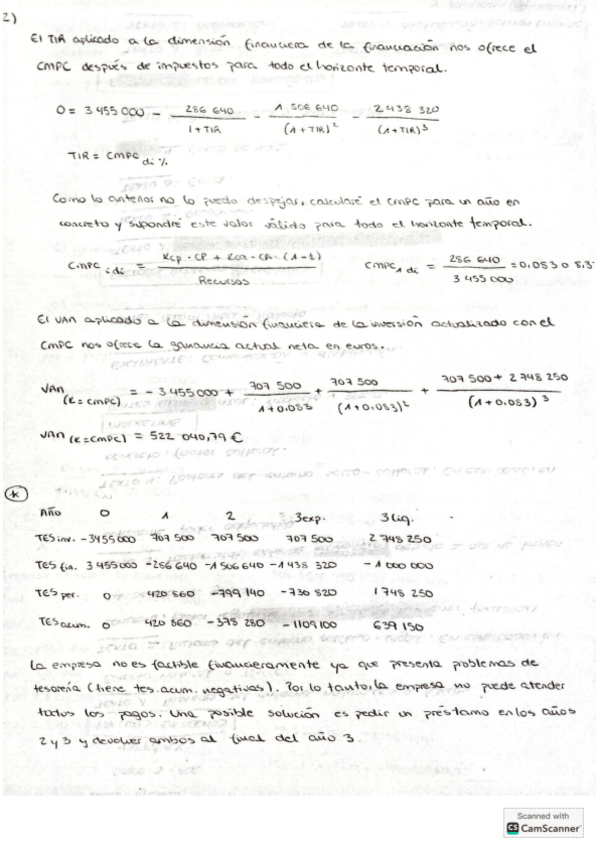 2)
El TIR aplicado a la dimensión financiera de la financiación nos ofrece el
CMPC después de impuestos para todo el horizonte temporal.
0 = 3 455 000 - 286 640 / 1 + TIR - 1 506 640 / (1 + TIR)² - 2 438 320 / (1 + TIR)³
TIR = CMPC di %
Como lo anterior no lo puedo despejar, calcularé el CMPC para un año en
concreto y supondré este valor válido para todo el horizonte temporal.
CMPC i di = Kcp · CP + Kca · CA · (1 - t) / Recursos CMPC 1 di = 286 640 / 3 455 000 = 0,083 o 8,3
El VAN aplicado a la dimensión financiera de la inversión actualizado con el
CMPC nos ofrece la ganancia actual neta en euros.
VAN (K = CMPC) = - 3 455 000 + 707 500 / 1 + 0,083 + 707 500 / (1 + 0,083)² + 707 500 + 2 748 250 / (1 + 0,083)³
VAN (K = CMPC) = 522 040,79 €
Año 0 1 2 3 exp. 3 liq.
TES inv. -3455 000 707 500 707 500 707 500 2 748 250
TES fin. 3 455 000 -286 640 -1 506 640 -1 438 320 -1 000 000
TES per. 0 420 860 -799 140 -730 820 1 748 250
TES acum. 0 420 860 -378 280 -1109 100 639 150
La empresa no es factible financieramente ya que presenta problemas de
tesorería (tiene tes. acum. negativas). Por lo tanto, la empresa no puede atender
todos los pagos. Una posible solución es pedir un préstamo en los años
2 y 3 y devolver ambos al final del año 3.
Scanned with
CS CamScanner